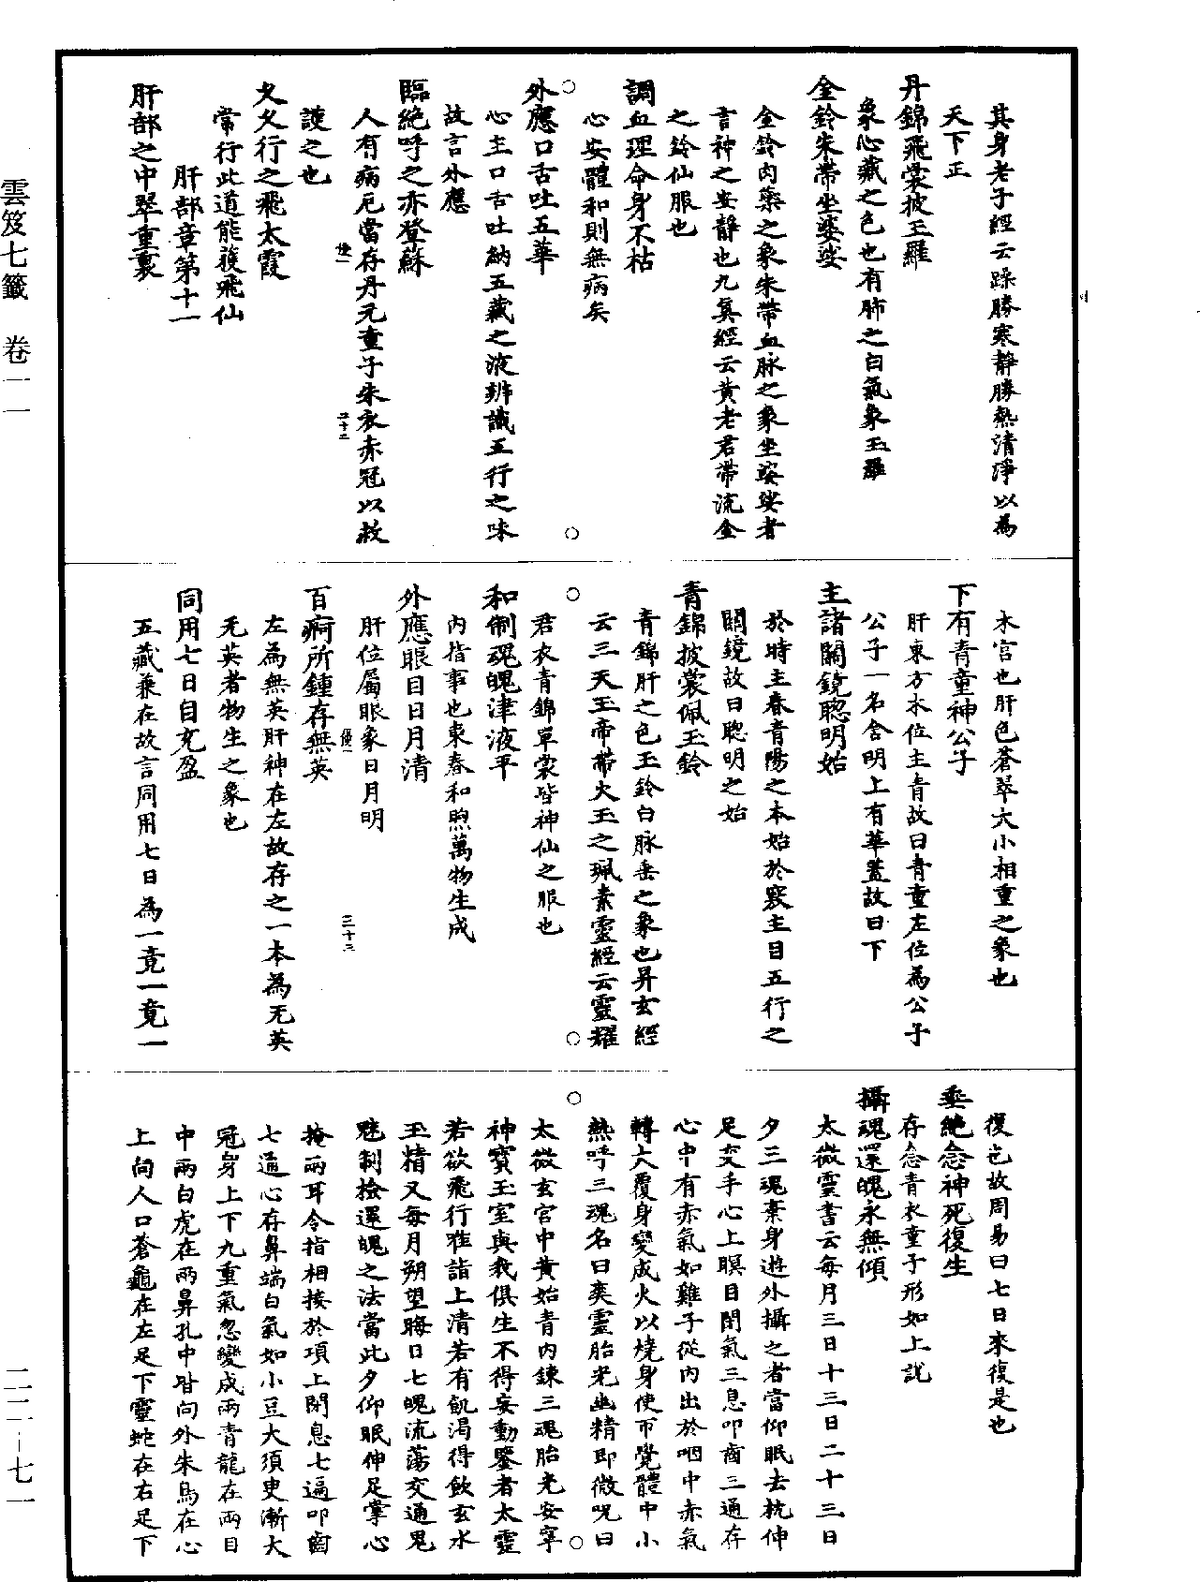 其身老子經云躁勝寒靜勝熱清淨以為
天下正
丹錦飛裳披玉羅
象心藏之色也有肺之白氣象玉羅
金鈴朱帶坐婆娑
金鈴肉藥之象朱帶血脉之象坐婆娑者
言神之安靜也九真經云黃老君帶流金
之鈴仙服也
調血理命身不枯
心安體和則無病矣
外應口舌吐五華
心主口舌吐納五藏之液辨識五行之味
故言外應
臨絕呼之亦登蘇
人有病厄當存丹元童子朱衣赤冠以救
優一 二十二
護之也
久久行之飛太霞
常行此道能獲飛仙
肝部章第十一
肝部之中翠重裏
木宮也肝色蒼翠大小相重之象也
下有青童神公子
肝東方木位主青故曰青童左位為公子
公子一名含明上有華蓋故曰下
主諸關鏡聰明始
於時主春青陽之本始於竅主目五行之
關鏡故曰聰明之始
青錦披裳佩玉鈴
青錦肝之色玉鈴白脉垂之象也昇玄經
云三天玉帝帶火玉之珮素靈經云靈耀
君衣青錦單裳皆神仙之服也
和制魂魄津液平
內指事也東春和煦萬物生成
外應眼目日月清
肝位屬眼象日月明
優一 二十三
百痾所鍾存無英
左為無英肝神在左故存之一本為无英
无英者物生之象也
同用七日自充盈
五藏兼在故言同用七日為一竟一竟一
復也故周易曰七日來復是也
垂絕念神死復生
存念青衣童子形如上説
攝魂還魄永無傾
太微靈書云每月三日十三日二十三日
夕三魂棄身遊外攝之者當仰眠去枕伸
足交手心上瞑目閉氣三息叩齒三通存
心中有赤氣如雞子從內出於咽中赤氣
轉大覆身變成火以燒身使帀覺體中小
熱呼三魂名曰爽靈胎光幽精即微呪曰
太微玄宮中黃始青內鍊三魂胎光安寧
神寶玉室與我俱生不得妄動鑒者太靈
若欲飛行唯詣上清若有飢渴得飲玄水
玉精又每月朔望晦日七魄流蕩交通鬼
魅制撿還魄之法當此夕仰眠伸足掌心
掩兩耳令指相接於項上閉息七遍叩齒
七通心存鼻端白氣如小豆大須臾漸大
冠身上下九重氣忽變成兩青龍在兩目
中兩白虎在兩鼻孔中皆向外朱鳥在心
上向人口蒼龜在左足下靈蛇在右足下
雲笈七籤 卷一一
二二—七一